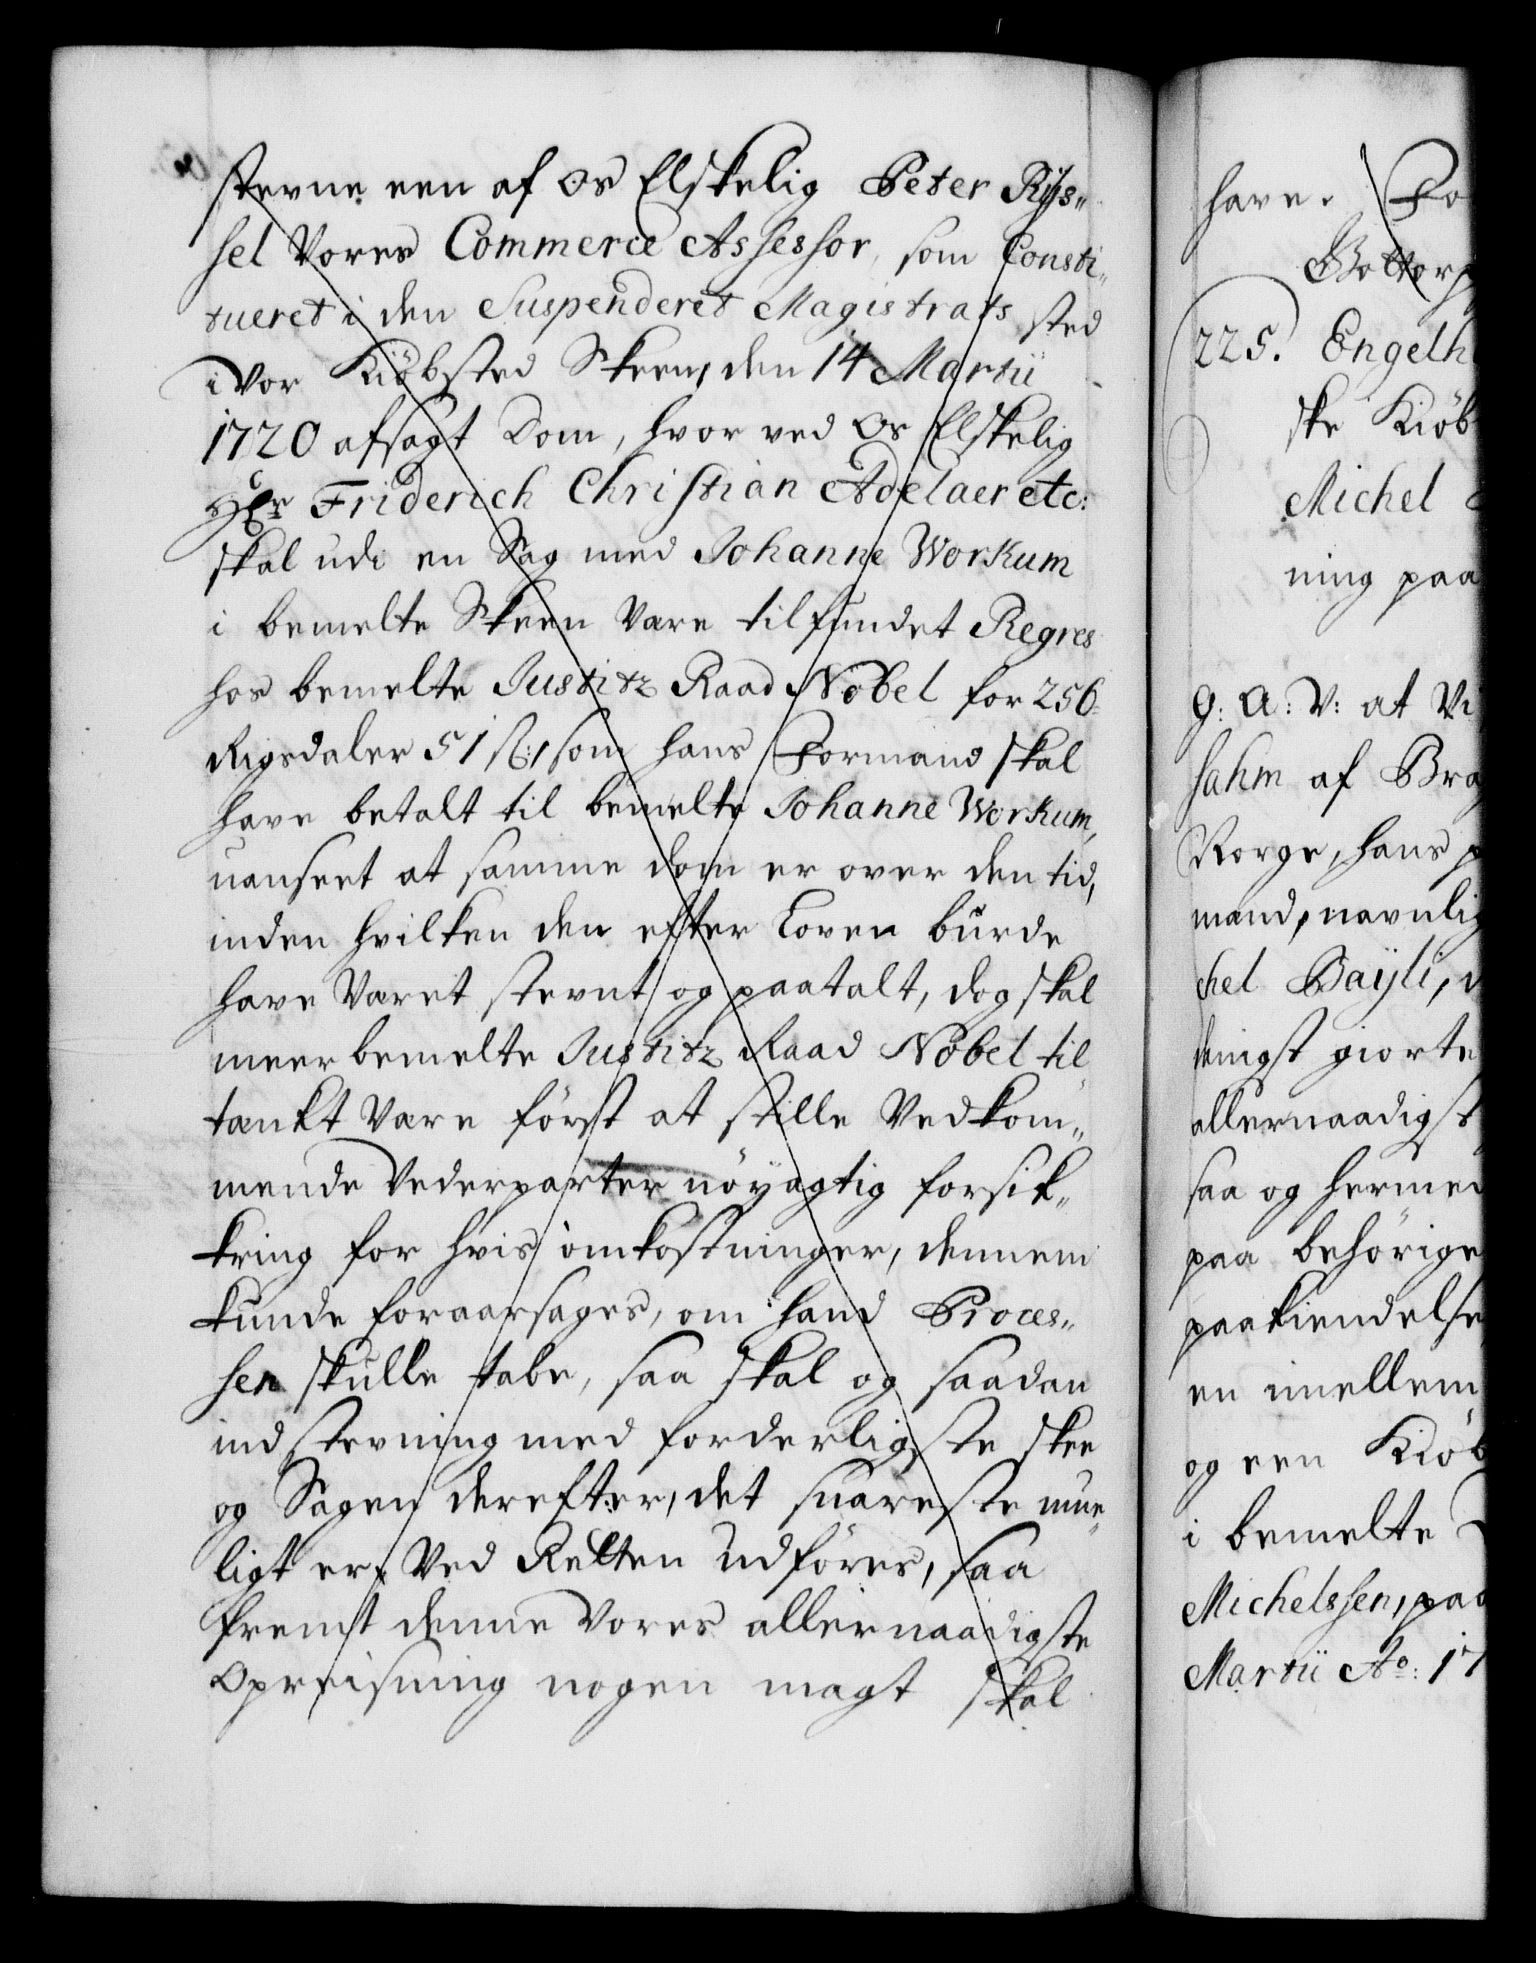 stevne een af os Elskelig Peter Rÿs„
sel Vores Commerce Assessor, som Consti„
tueret i den Suspenderet Magistrats sted
i Vor Kiöbsted Skeen, den 14 Martii
1720 afsagt Dom, hvor ved Os Elskelig
Hr Friderich Christian Adelaer etc:
skal udi en Sag med Johanne Workum
i bemelte Skeen Være tilfundet Regres
hos bemelte Justitz Raad Nobel for 256
Rigsdaler 51 ß, som hans Formand skal
have betalt til bemelte Johanne Workum,
uanseet at samme dom er over den tid,
inden hvilken den efter Loven burde
have Været stevnt og paatalt, dog skal
meerbemelte Justitz Raad Nobel til
tænkt Være först at stille Vedkom„
mende Vederparter nöyagtig forsik„
kring for hvis omkostninger, dennem
kunde foraarsages, om hand Proces„
sen skulle tabe, saa skal og saadan
indstevning med forderligste skee
og Sagen derefter, det snareste mue„
ligt er, Ved Retten Udföres, saa
fremt denne Vores allernaadigste
Opreisning nogen magt skal
have. Fo
Gottorp
225. Engelh
ske Kiöb
Michel
ning paa
G: A: V: at Vi
sahm af Brag
Norge, hans
mand, navnlig
chel Baÿli,
danigst giorte
allernaadigst
saa og hermed
paa behörige
paakiendelse
en imellem
og een Kiöb
i bemelte
Michelssen, paa
Martii Ao: 17